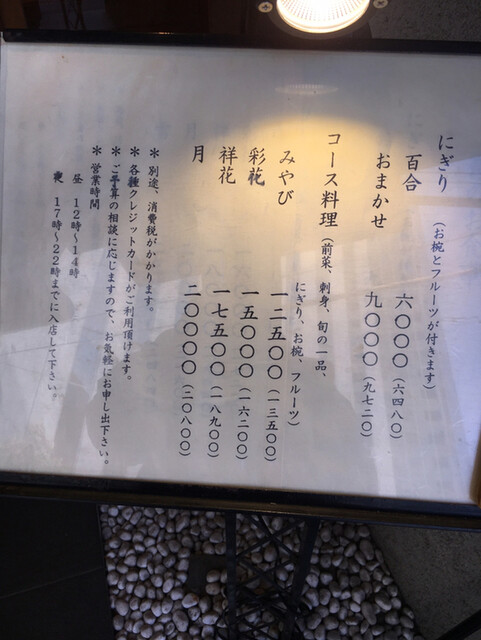 にぎり (お椀とフルーツが付きます)
百合 六〇〇〇 (六四八〇)
おまかせ 九〇〇〇 (九七二〇)
コース料理 (前菜、刺身、旬の一品、
にぎり、お椀、フルーツ)
みやび 一二五〇〇 (一三五〇〇)
彩花 一五〇〇〇 (一六二〇〇)
祥花 一七五〇〇 (一八九〇〇)
月 二〇〇〇〇 (二〇八〇〇)
＊ 別途、消費税がかかります。
＊ 各種クレジットカードがご利用頂けます。
＊ ご予算の相談に応じますので、お気軽にお申し出下さい。
＊ 営業時間
昼 12時〜14時
夜 17時〜22時までに入店して下さい。